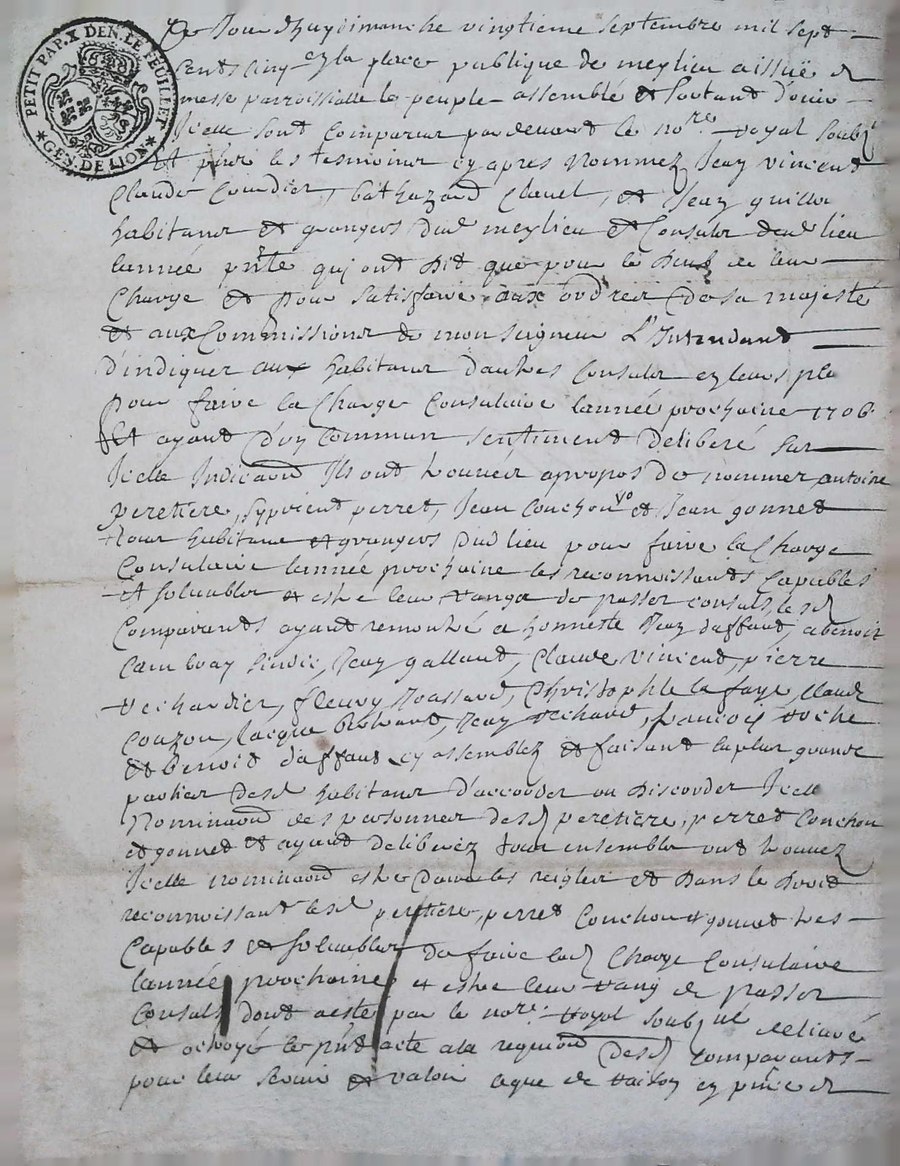 PETIT PAP. X DEN. LE FEUILLET
GEN. DE LION
Ce Jourdhuy dimanche vingtieme septembre mil sept
cents cinq en la place publique de meylieu a issuë de
messe parroissialle le peuple assemblé et sortant d'ouir
Icelle sont comparus pardevant le nore royal soubzne
Et pnts les tesmoins cy apres nommez Jean vincent
Claude Coudier, bathazard Clauel, et Jean guillo
habitans et grangers dud meylieu et Consulz dud lieu
lannée pnte qui ont dit que pour le deub de leur
Charge et pour satisfaire aux ordres de sa majesté
et aux Commissions de monseigneur L'Intendant
d'indiquer aux habitans dautres Consulz en leurs pla
pour faire la Charge Consulaire lannée prochaine 1706
Et ayant d'un commun sentiment deliberé sur
Icelle Indicaon Ils ont trouvés apropos de nommer antoine
peretiere, perret, Jean Couchou et Jean gonnet
Tous habitans et grangers dud lieu pour faire la Charge
Consulaire lannée prochaine les reconnoissants Capables
et soluables et estre leur rang de passer consulz lesd
Comparants ayant remontré a honneste Jean daffaud, a benoit
Cambray sindic, Jean galland, Claude vincent, pierre
rechardier, fleury Toussand, Christophle la faye, Claude
Couzon, Jacque Rolland, Jean rechand, francois roche
et Benoit daffaud cy assemblez et faisant la plus grande
partier desd habitans d'accorder ou discorder Icelle
Nominaon des personnes desd peretiere, perret Couchou
et gonnet et ayant deliberez tous ensemble ont trouvez
Icelle nominaon estre dans les reigles et dans le droit
reconnoissant lesd peretiere, perret Couchou et gonnet tres
Capables et soluables de faire lad Charge Consulaire
lannée prochaine et estre leur rang de passer
Consulz dont acte par le nore royal soubzne
et octroyé le pnt acte a la requion desd comparants
pour leur servir et valoir ce que de raison en pnce de